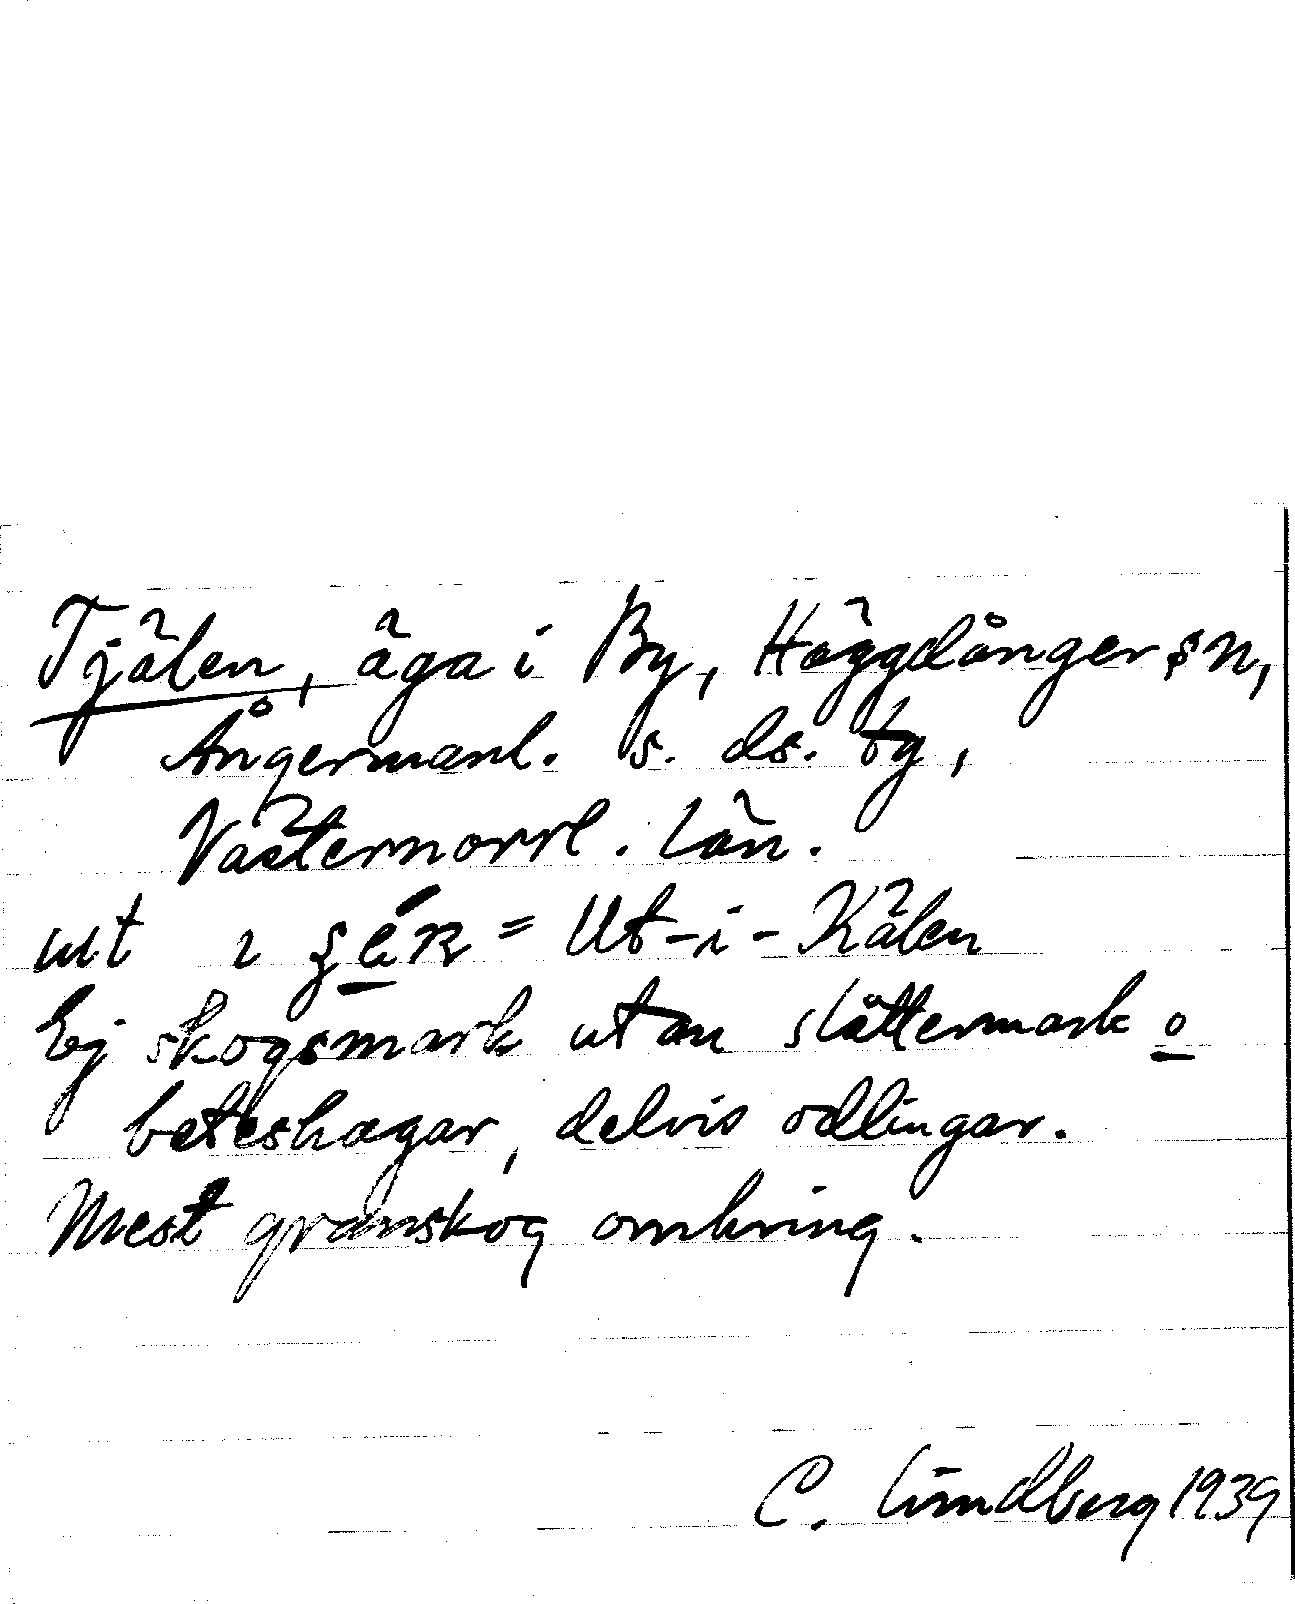 Tjälen, äga i By, Häggdånger sn,
Ångermanl. s. ds. tg,
Västernorrl. län.
ut i = Ut-i-Kälen
Ej skogsmark utan slåttermark o
beteshagar, delvis odlingar.
Mest granskog omkring.
C. Lindberg 1939